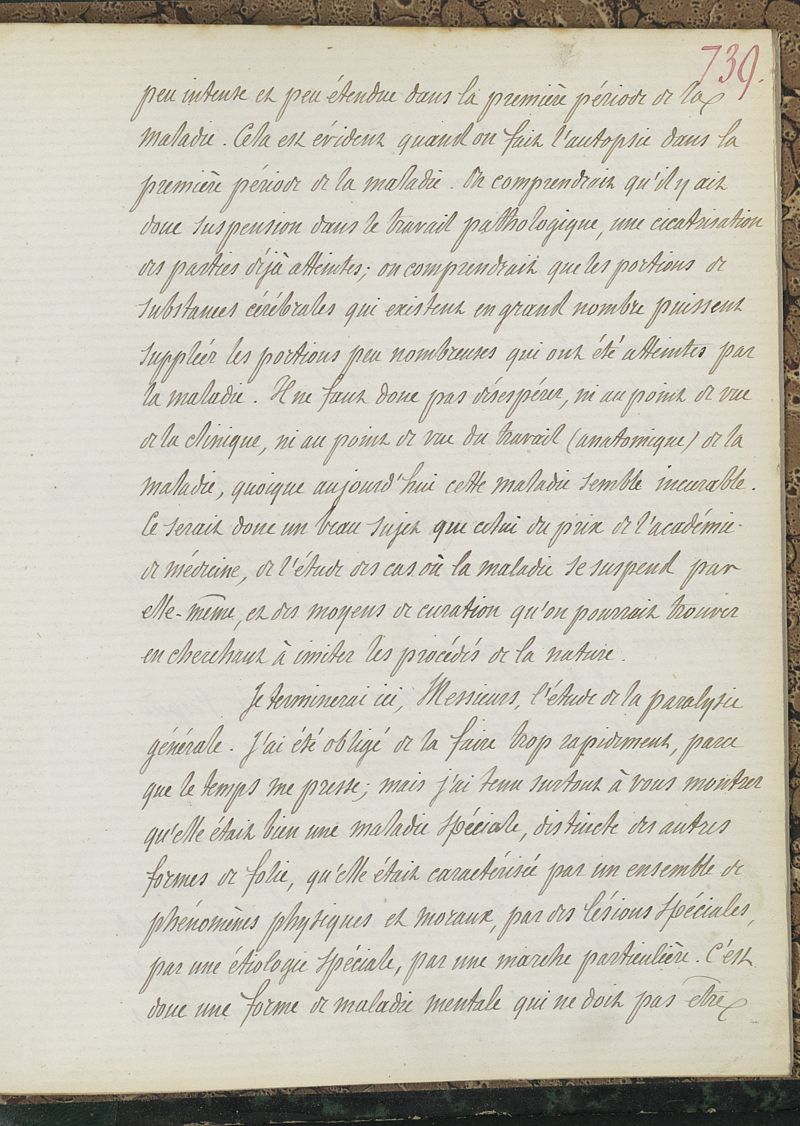 739.
peu intense et peu étendue dans la première période de la
maladie. Cela est évident quand on fait l'autopsie dans la
première période de la maladie. On comprendrait qu'il y ait
donc suspension dans le travail pathologique, une cicatrisation
des parties déjà atteintes; on comprendrait que les portions de
substances cérébrales qui existent en grand nombre puissent
suppléer les portions peu nombreuses qui ont été atteintes par
la maladie. Il ne faut donc pas désespérer, ni au point de vue
de la clinique, ni au point de vue du travail (anatomique) de la
maladie, quoique aujourd'hui cette maladie semble incurable.
Ce serait donc un beau sujet que celui du prix de l'académie
de médecine, de l'étude des cas où la maladie se suspend par
elle-même, et des moyens de curation qu'on pourrait trouver
en cherchant à imiter les procédés de la nature.
Je terminerai ici, Messieurs, l'étude de la paralysie
générale. J'ai été obligé de la faire trop rapidement, parce
que le temps me presse; mais j'ai tenu surtout à vous montrer
qu'elle était bien une maladie spéciale, distincte des autres
formes de folie, qu'elle était caractérisée par un ensemble de
phénomènes physiques et moraux, par des lésions spéciales,
par une étiologie spéciale, par une marche particulière. C'est
donc une forme de maladie mentale qui ne doit pas être